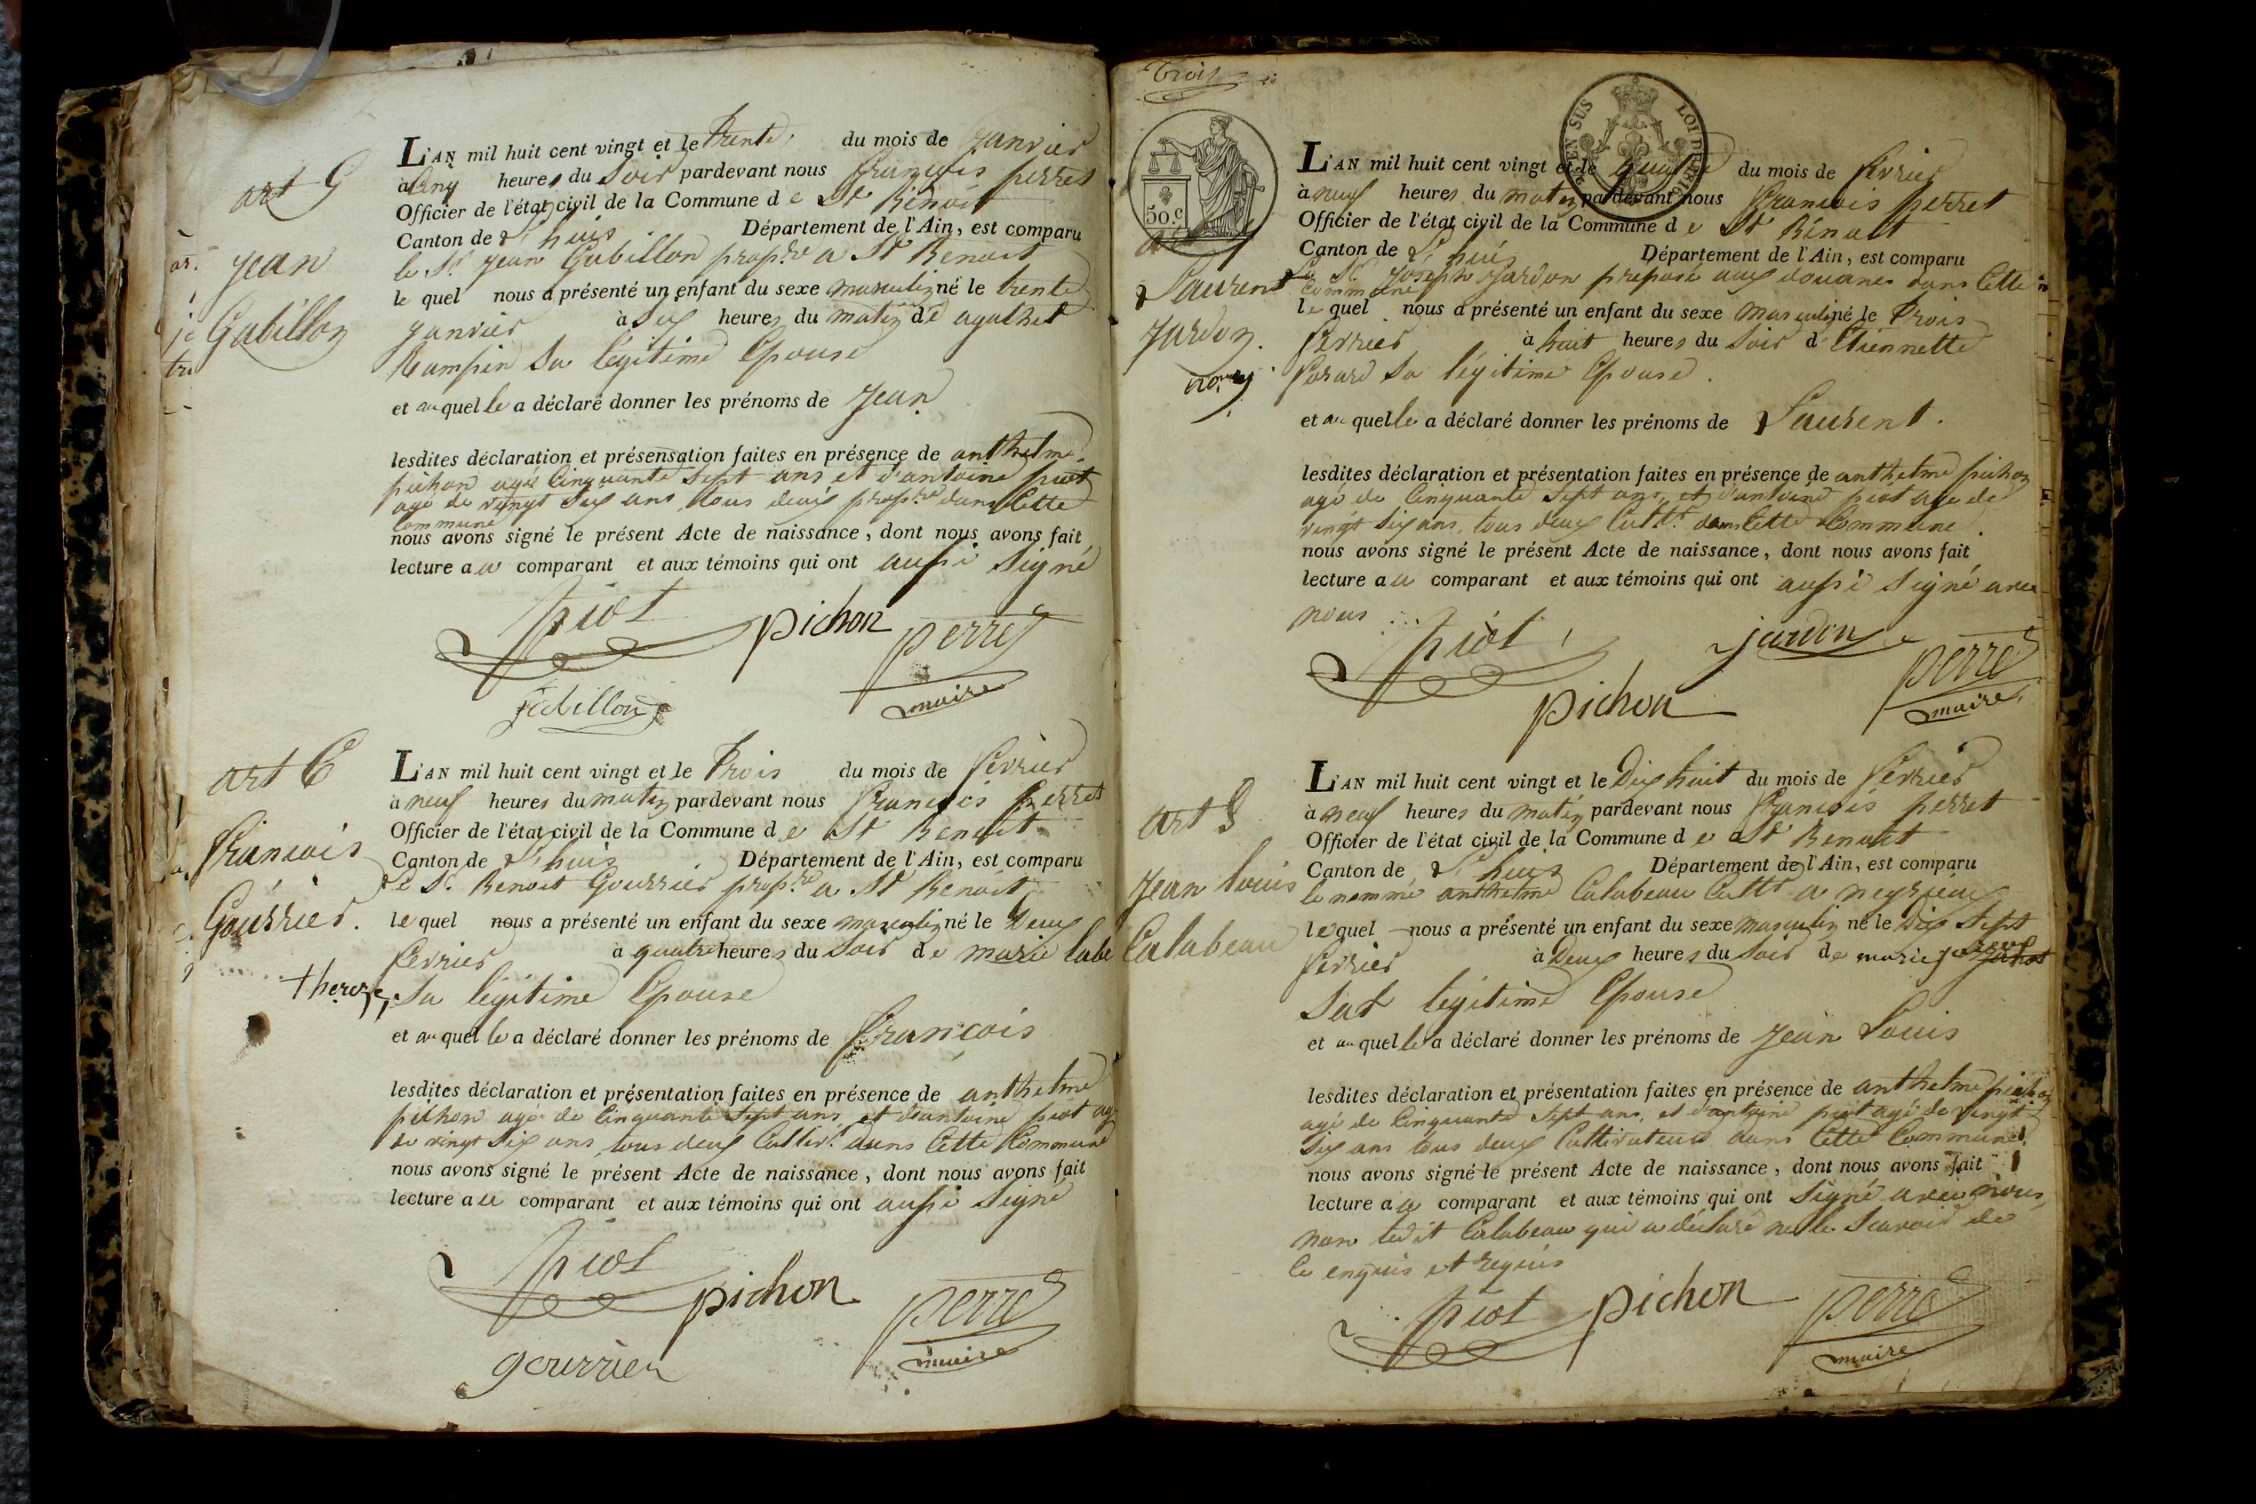 art 5
jean
Gubillon
L'AN mil huit cent vingt et le trente du mois de janvier
à cinq heures du soir pardevant nous françois perret
Officier de l'état civil de la Commune de St Benoit
Canton de L'huis Département de l'Ain, est comparu
le Sr jean Gubillon propre a St Benoit
lequel nous a présenté un enfant du sexe masculin né le trente
janvier à six heures du matin de agathe
sa légitime Epouse
et auquel le a déclaré donner les prénoms de jean
lesdites déclaration et présensation faites en présence de anthelme
pichon agé Cinquante sept ans et d'antoine piot
agé de vingt six ans tous deux propre dans Cette
Commune
nous avons signé le présent Acte de naissance, dont nous avons fait
lecture au comparant et aux témoins qui ont aussi signé
piot pichon perret
maire
art 6
françois
Gourrier.
therèze
L'AN mil huit cent vingt et le trois du mois de fevrier
à neuf heures du matin pardevant nous françois perret
Officier de l'état civil de la Commune de St Benoit
Canton de L'huis Département de l'Ain, est comparu
le Sr Benoit Gourrier propre a St Benoit
lequel nous a présenté un enfant du sexe masculin né le Deux
fevrier à quatre heures du soir de marie labe
sa légitime Epouse
et auquel le a déclaré donner les prénoms de françois
lesdites déclaration et présentation faites en présence de anthelme
pichon agé de Cinquante sept ans et d'antoine piot agé
de vingt six ans tous deux Cultivr dans Cette Commune
nous avons signé le présent Acte de naissance, dont nous avons fait
lecture au comparant et aux témoins qui ont aussi signé
piot pichon perret
maire
gourrier
trois
50.c
EN SUS
LOI DE 1816
Laurent
jardon.
L'AN mil huit cent vingt et le du mois de fevrier
à neuf heures du matin pardevant nous françois perret
Officier de l'état civil de la Commune de St Benoit
Canton de L'huis Département de l'Ain, est comparu
le Sr Joseph jardon preposé aux douanes dans Cette
Commune
lequel nous a présenté un enfant du sexe masculin né le trois
fevrier à huit heures du soir d'Etiennette
sa légitime Epouse.
et auquel le a déclaré donner les prénoms de Laurent.
lesdites déclaration et présentation faites en présence de anthelme pichon
agé de Cinquante sept ans et d'antoine piot agé de
vingt six ans tous deux Cultrs dans Cette Commune
nous avons signé le présent Acte de naissance, dont nous avons fait
lecture au comparant et aux témoins qui ont aussi signé avec
nous
piot jardon perret
pichon maire
art 8
jean louis
Calabeau
L'AN mil huit cent vingt et le Dix huit du mois de fevrier
à neuf heures du matin pardevant nous françois perret
Officier de l'état civil de la Commune de St Benoit
Canton de L'huis Département de l'Ain, est comparu
le nommé anthelme Calabeau Cultr a neyrieu
lequel nous a présenté un enfant du sexe masculin né le Dix sept
fevrier à Deux heures du soir de marie
sa légitime Epouse
et auquel le a déclaré donner les prénoms de jean Louis
lesdites déclaration et présentation faites en présence de anthelme pichon
agé de Cinquante sept ans, et d'antoine piot agé de vingt
six ans tous deux Cultivateurs dans Cette Commune
nous avons signé le présent Acte de naissance, dont nous avons fait
lecture au comparant et aux témoins qui ont signé avec nous
non ledit Calabeau qui a déclaré ne le scavoir de
ce enquis et requis
piot pichon perret
maire